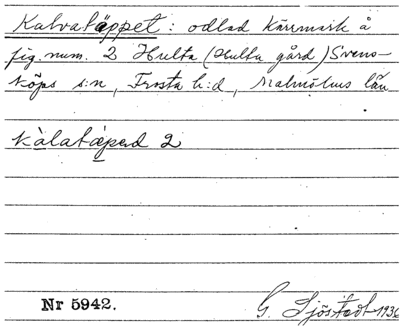 Kalvatäppet: odlad kärrmark å
fig. num. 2 Hulta (Hulta gård) Svens-
köps s:n, Frosta h:d, Malmöhus län
kàlatäped 2
Nr 5942.
G. Sjöstedt 1936